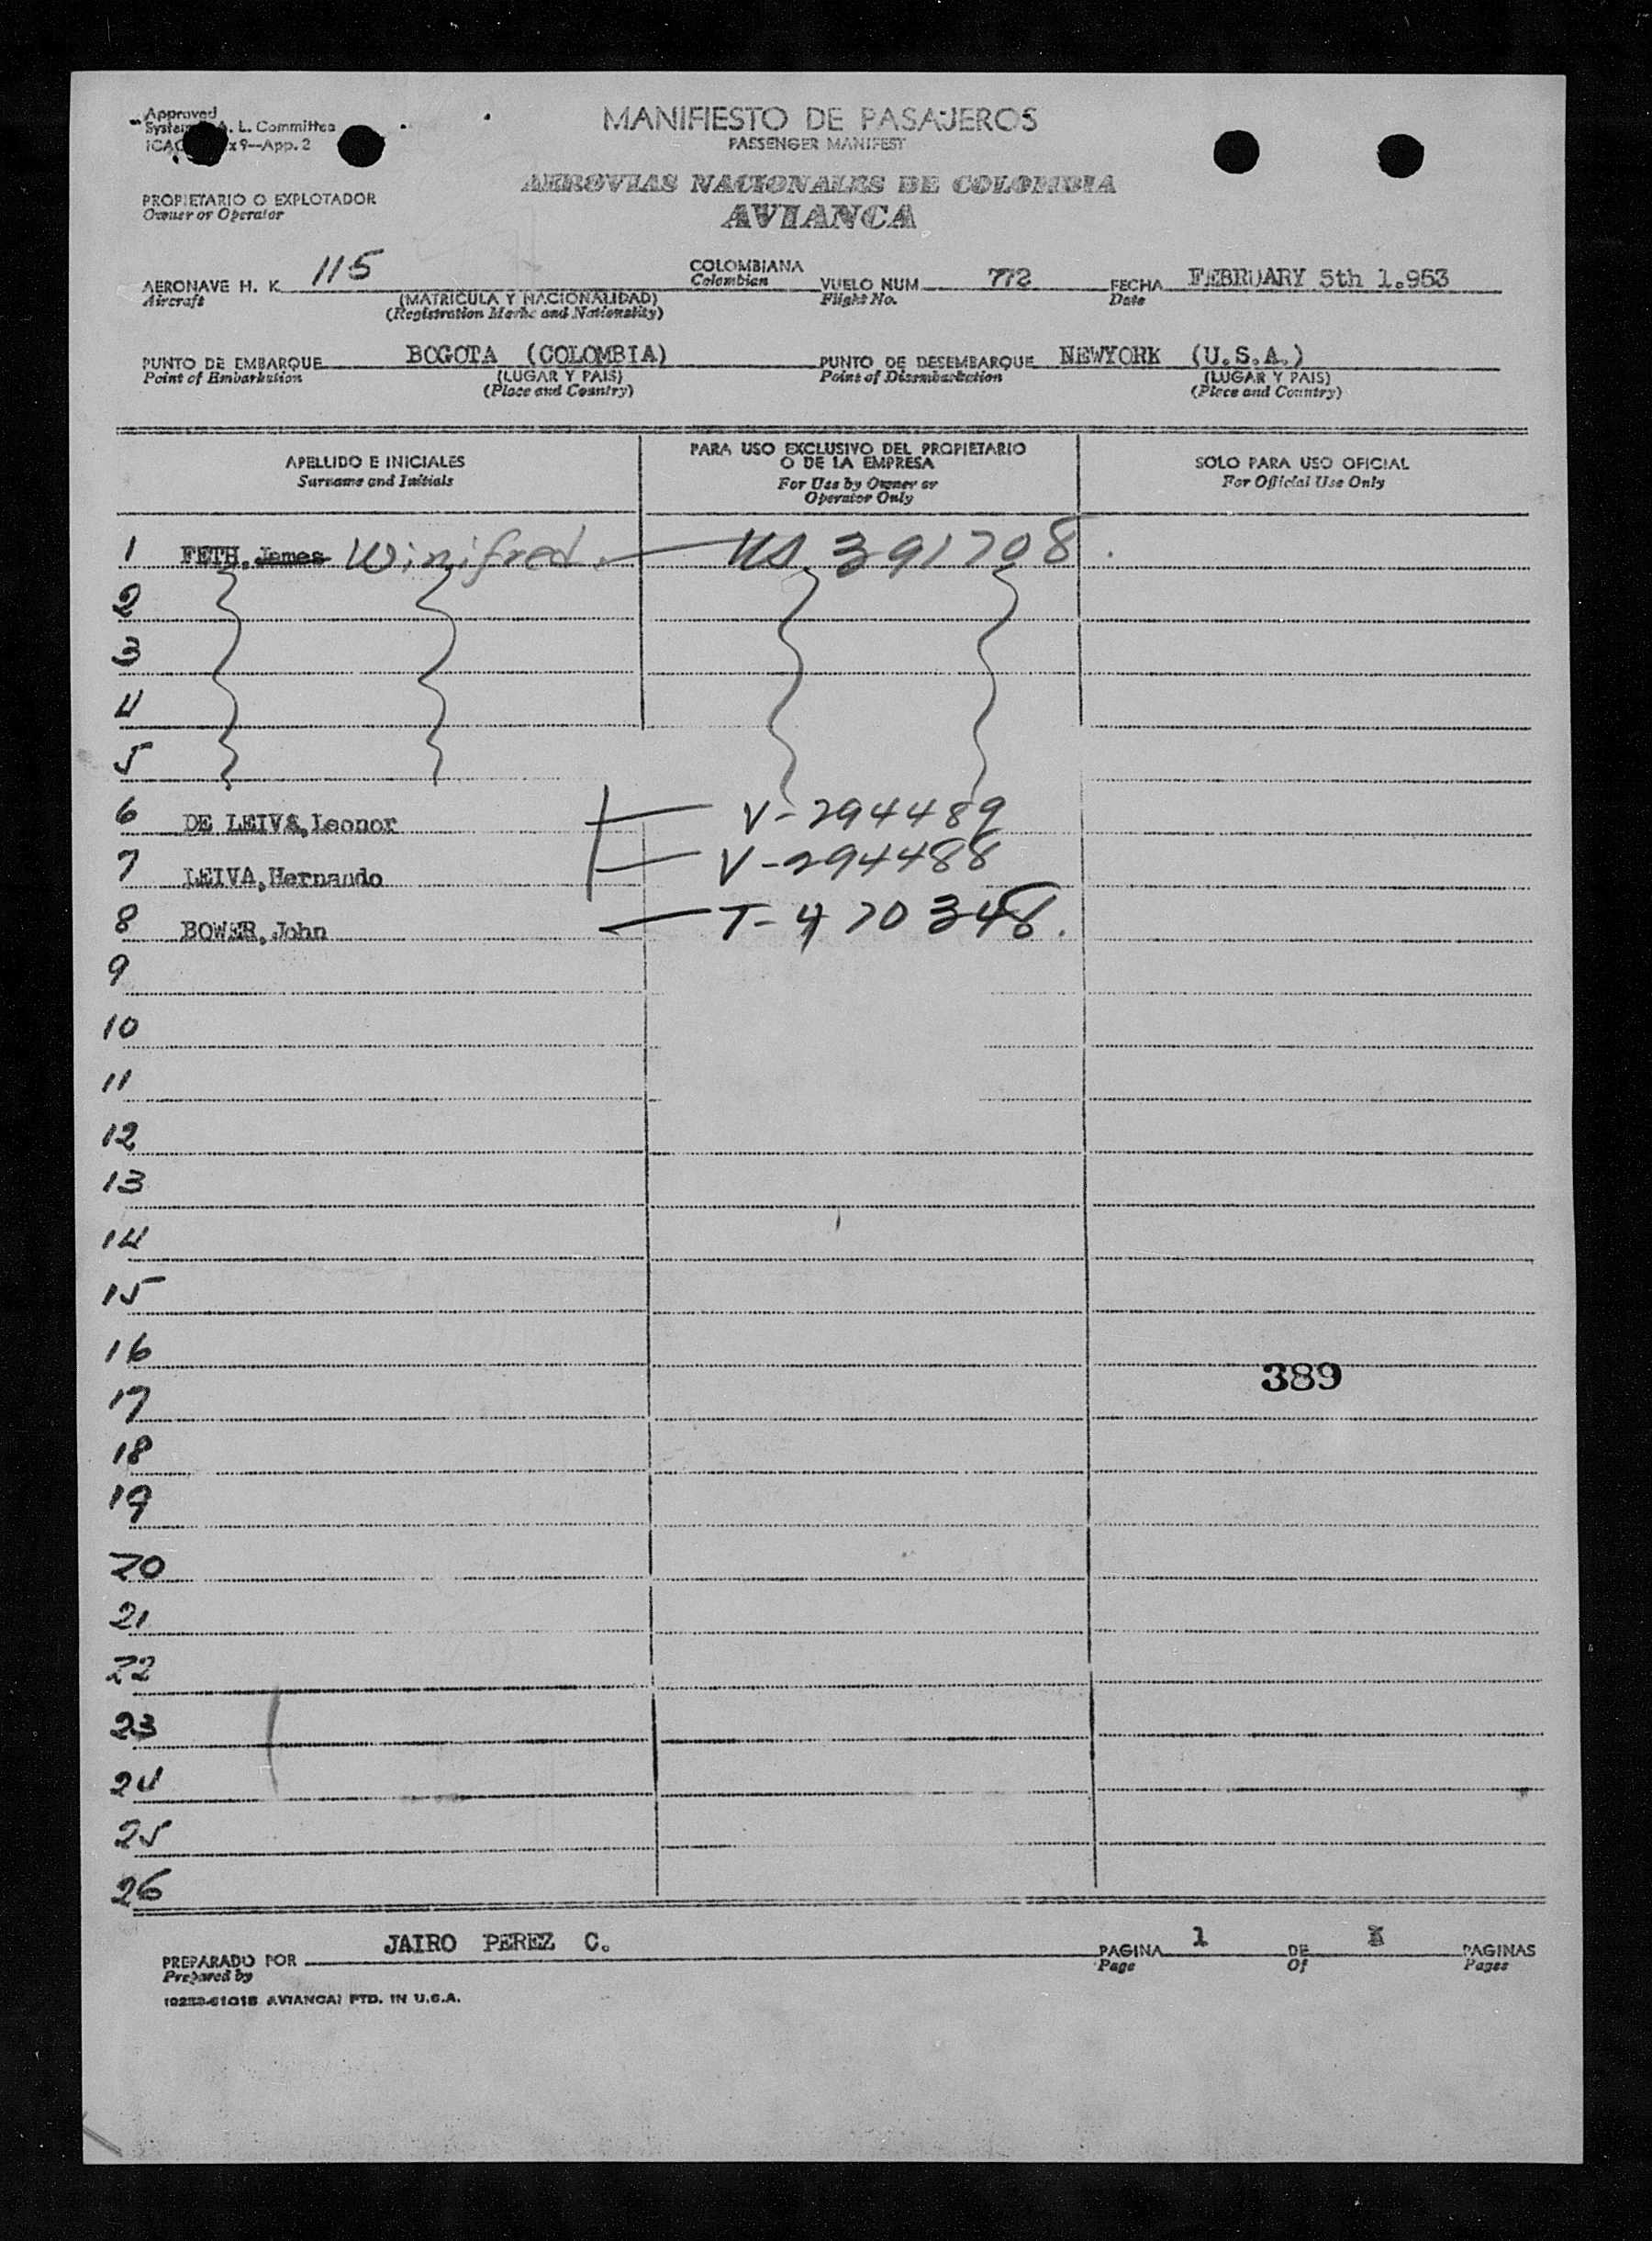 Approved
MANIFIESTO DE PASAJEROS
PASSENGER MANIFEST
A. L. Committee
9—App. 2
AEROVIAS NACIONALES DE COLOMBIA
AVIANCA
PROPIETARIO O EXPLOTADOR
Owner or Operator
AERONAVE H. K. 115 COLOMBIANA VUELO NUM 772 FECHA FEBRUARY 5th 1.953
Aircraft (MATRICULA Y NACIONALIDAD) Colombian Flight No. Date
(Registration Marks and Nationality)
PUNTO DE EMBARQUE BOGOTA (COLOMBIA) PUNTO DE DESEMBARQUE NEWYORK (U.S.A.)
Point of Embarkation (LUGAR Y PAIS) Point of Disembarkation (LUGAR Y PAIS)
(Place and Country) (Place and Country)
APELLIDO E INICIALES PARA USO EXCLUSIVO DEL PROPIETARIO O DE LA EMPRESA SOLO PARA USO OFICIAL
Surname and Initials For Use by Owner or Operator Only For Official Use Only
1 FETH, James Winifred. US 391708.
2
3
4
5
6 DE LEIVA, Leonor V-294489
7 LEIVA, Hernando V-294488
8 BOWER, John T-470348.
9
10
11
12
13
14
15
16
389
17
18
19
20
21
22
23
24
25
26
PREPARADO POR JAIRO PEREZ C. PAGINA 1 DE PAGINAS
Prepared by Page Of Pages
AVIANCA PTD. IN U.S.A.